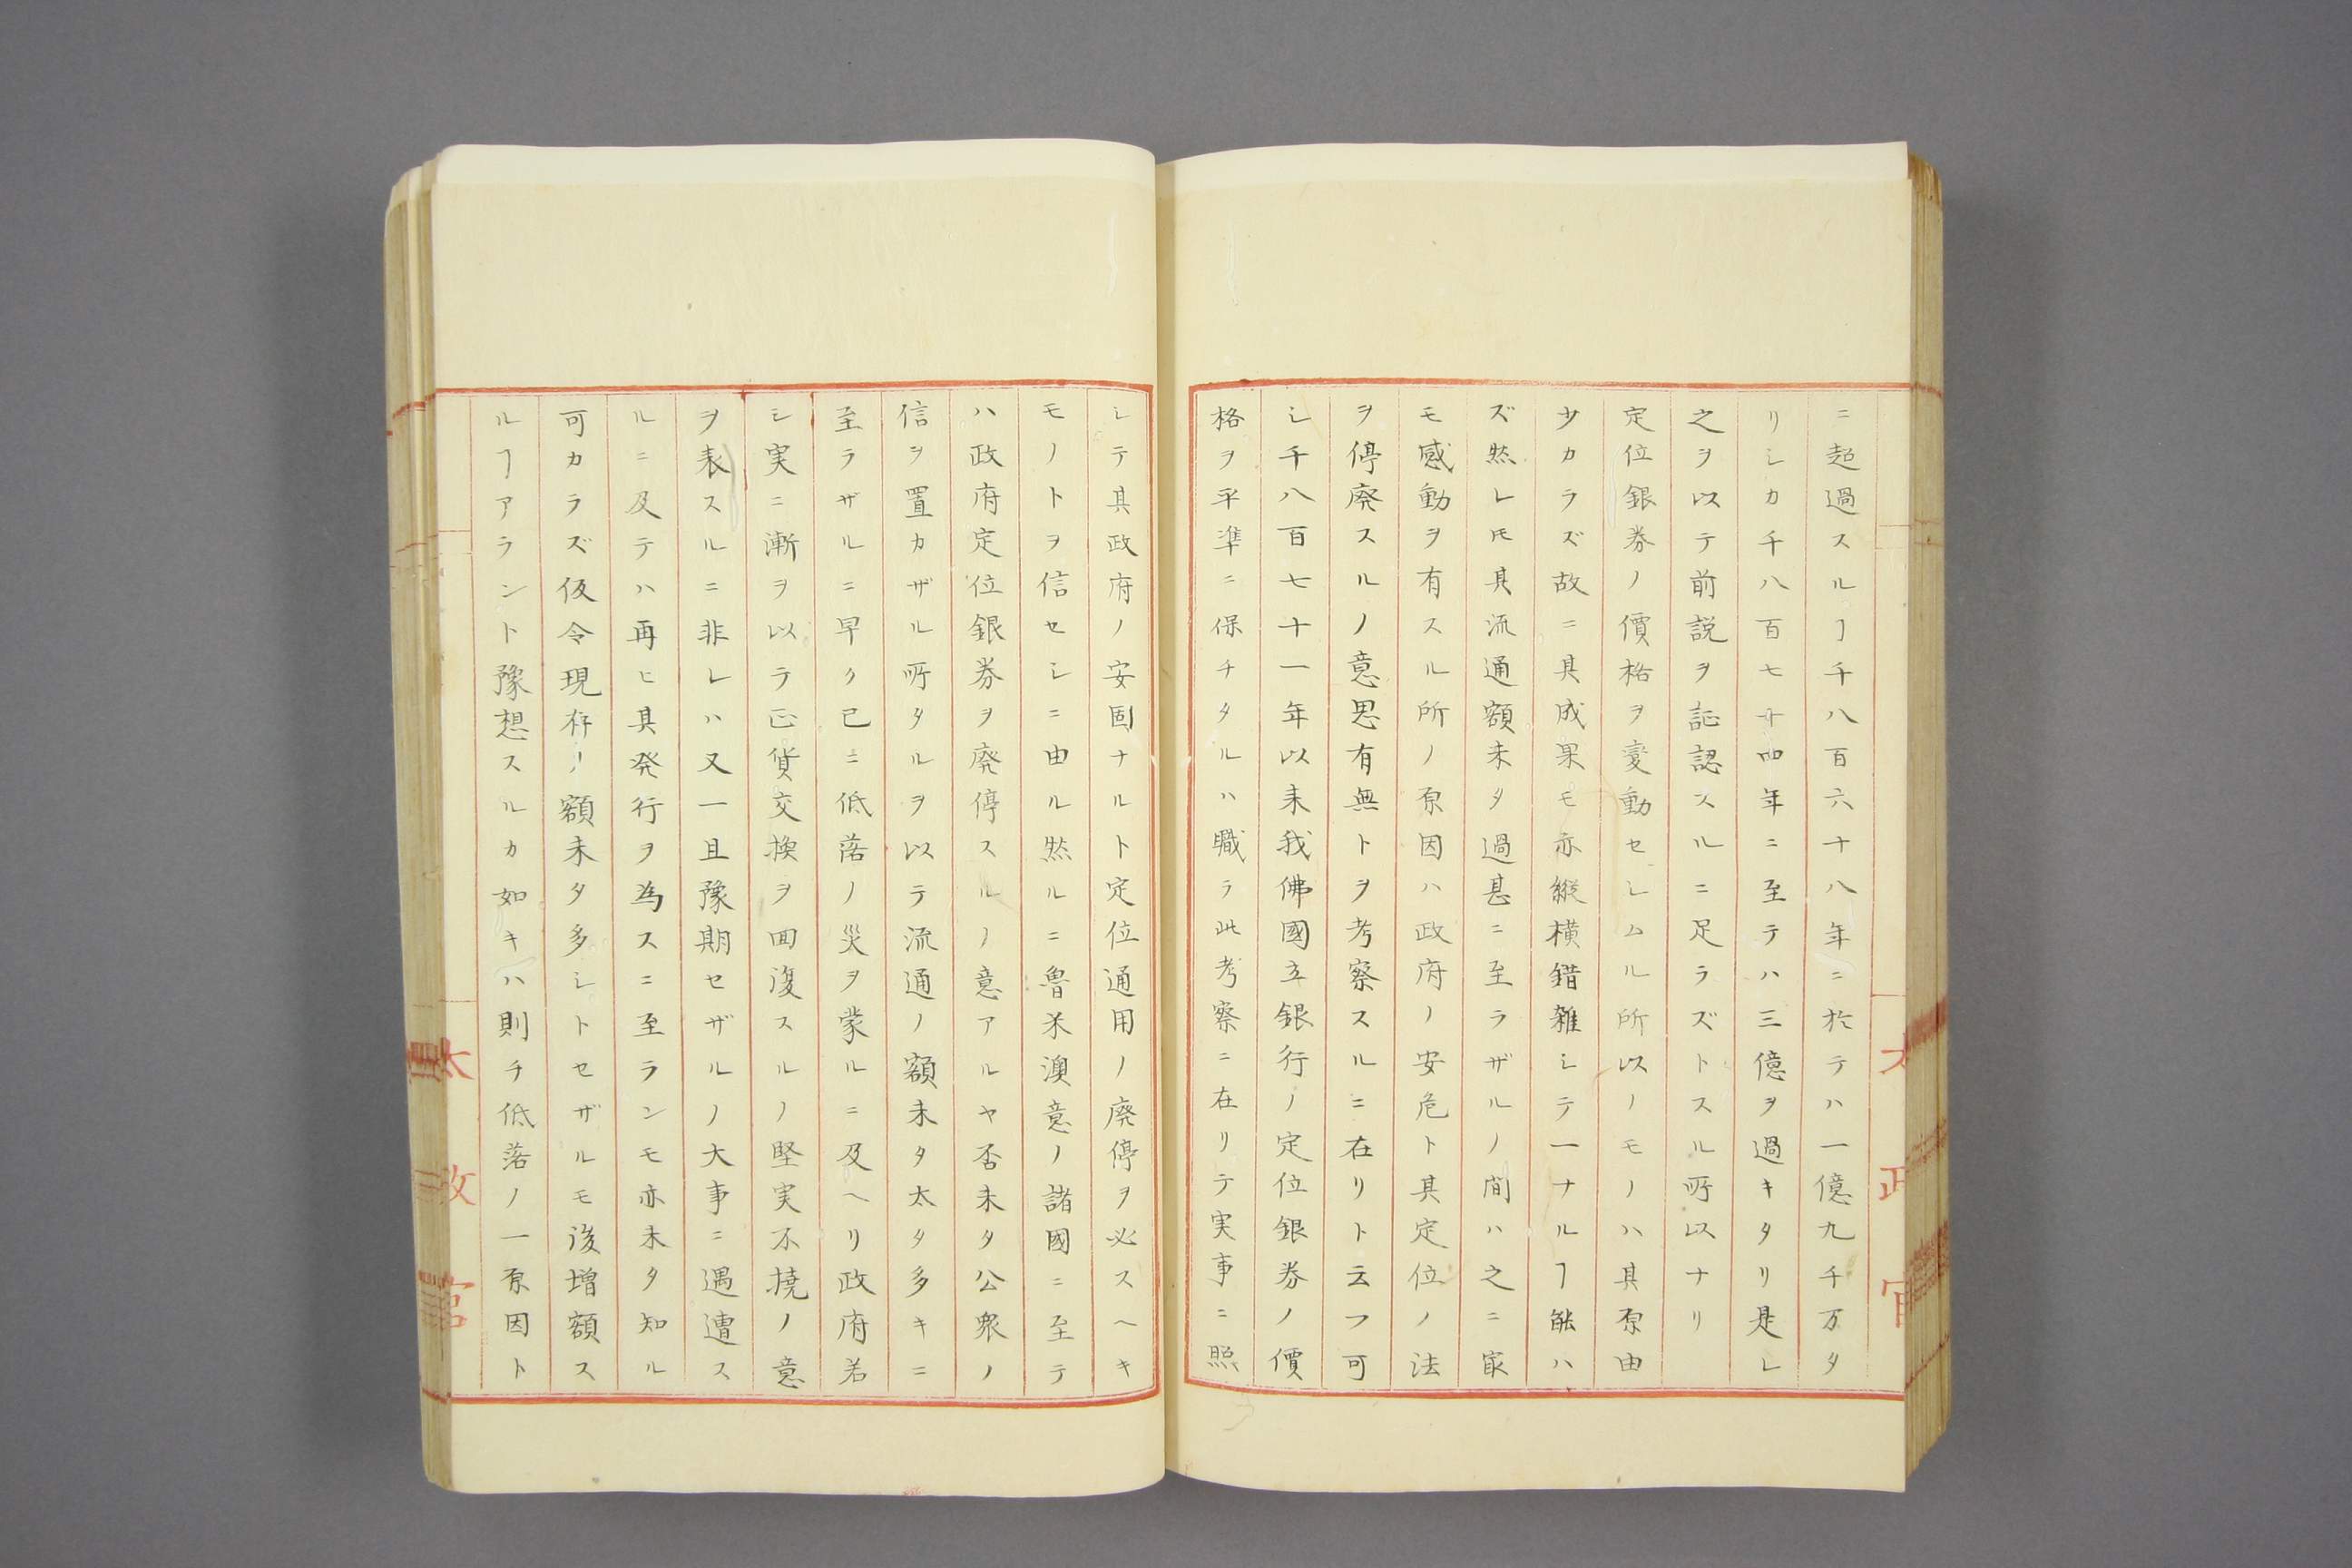 ニ超過スルヿ千八百六十八年ニ於テハ一億九千万タ
リシカ千八百七十四年ニ至テハ三億ヲ過キタリ是レ
之ヲ以テ前説ヲ証認スルニ足ラズトスル所以ナリ
定位銀券ノ價格ヲ変動セシムル所以ノモノハ其原由
少カラズ故ニ其成果モ亦縦横錯雑シテ一ナルヿ能ハ
ズ然レ𪜈其流通額未タ過甚ニ至ラザルノ間ハ之ニ㝡
モ感動ヲ有スル所ノ原因ハ政府ノ安危ト其定位ノ法
ヲ停廃スルノ意思有無トヲ考察スルニ在リト云フ可
シ千八百七十一年以来我佛國立銀行ノ定位銀券ノ價
格ヲ平準ニ保チタルハ職ラ此考察ニ在リテ実事ニ照
シテ其政府ノ安固ナルト定位通用ノ廃停ヲ必スヘキ
モノトヲ信セシニ由ル然ルニ魯米澳意ノ諸國ニ至テ
ハ政府定位銀券ヲ廃停スルノ意アルヤ否未タ公衆ノ
信ヲ置カザル所タルヲ以テ流通ノ額未タ太タ多キニ
至ラザルニ早ク已ニ低落ノ災ヲ蒙ルニ及ヘリ政府若
シ実ニ漸ヲ以テ正貨交換ヲ囬復スルノ堅実不撓ノ意
ヲ表スルニ非レハ又一旦豫期セザルノ大事ニ遇遭ス
ルニ及テハ再ヒ其発行ヲ為スニ至ランモ亦未タ知ル
可カラズ仮令現存ノ額未タ多シトセザルモ後増額ス
ルヿアラント豫想スルカ如キハ則チ低落ノ一原因ト
太政官
太政官